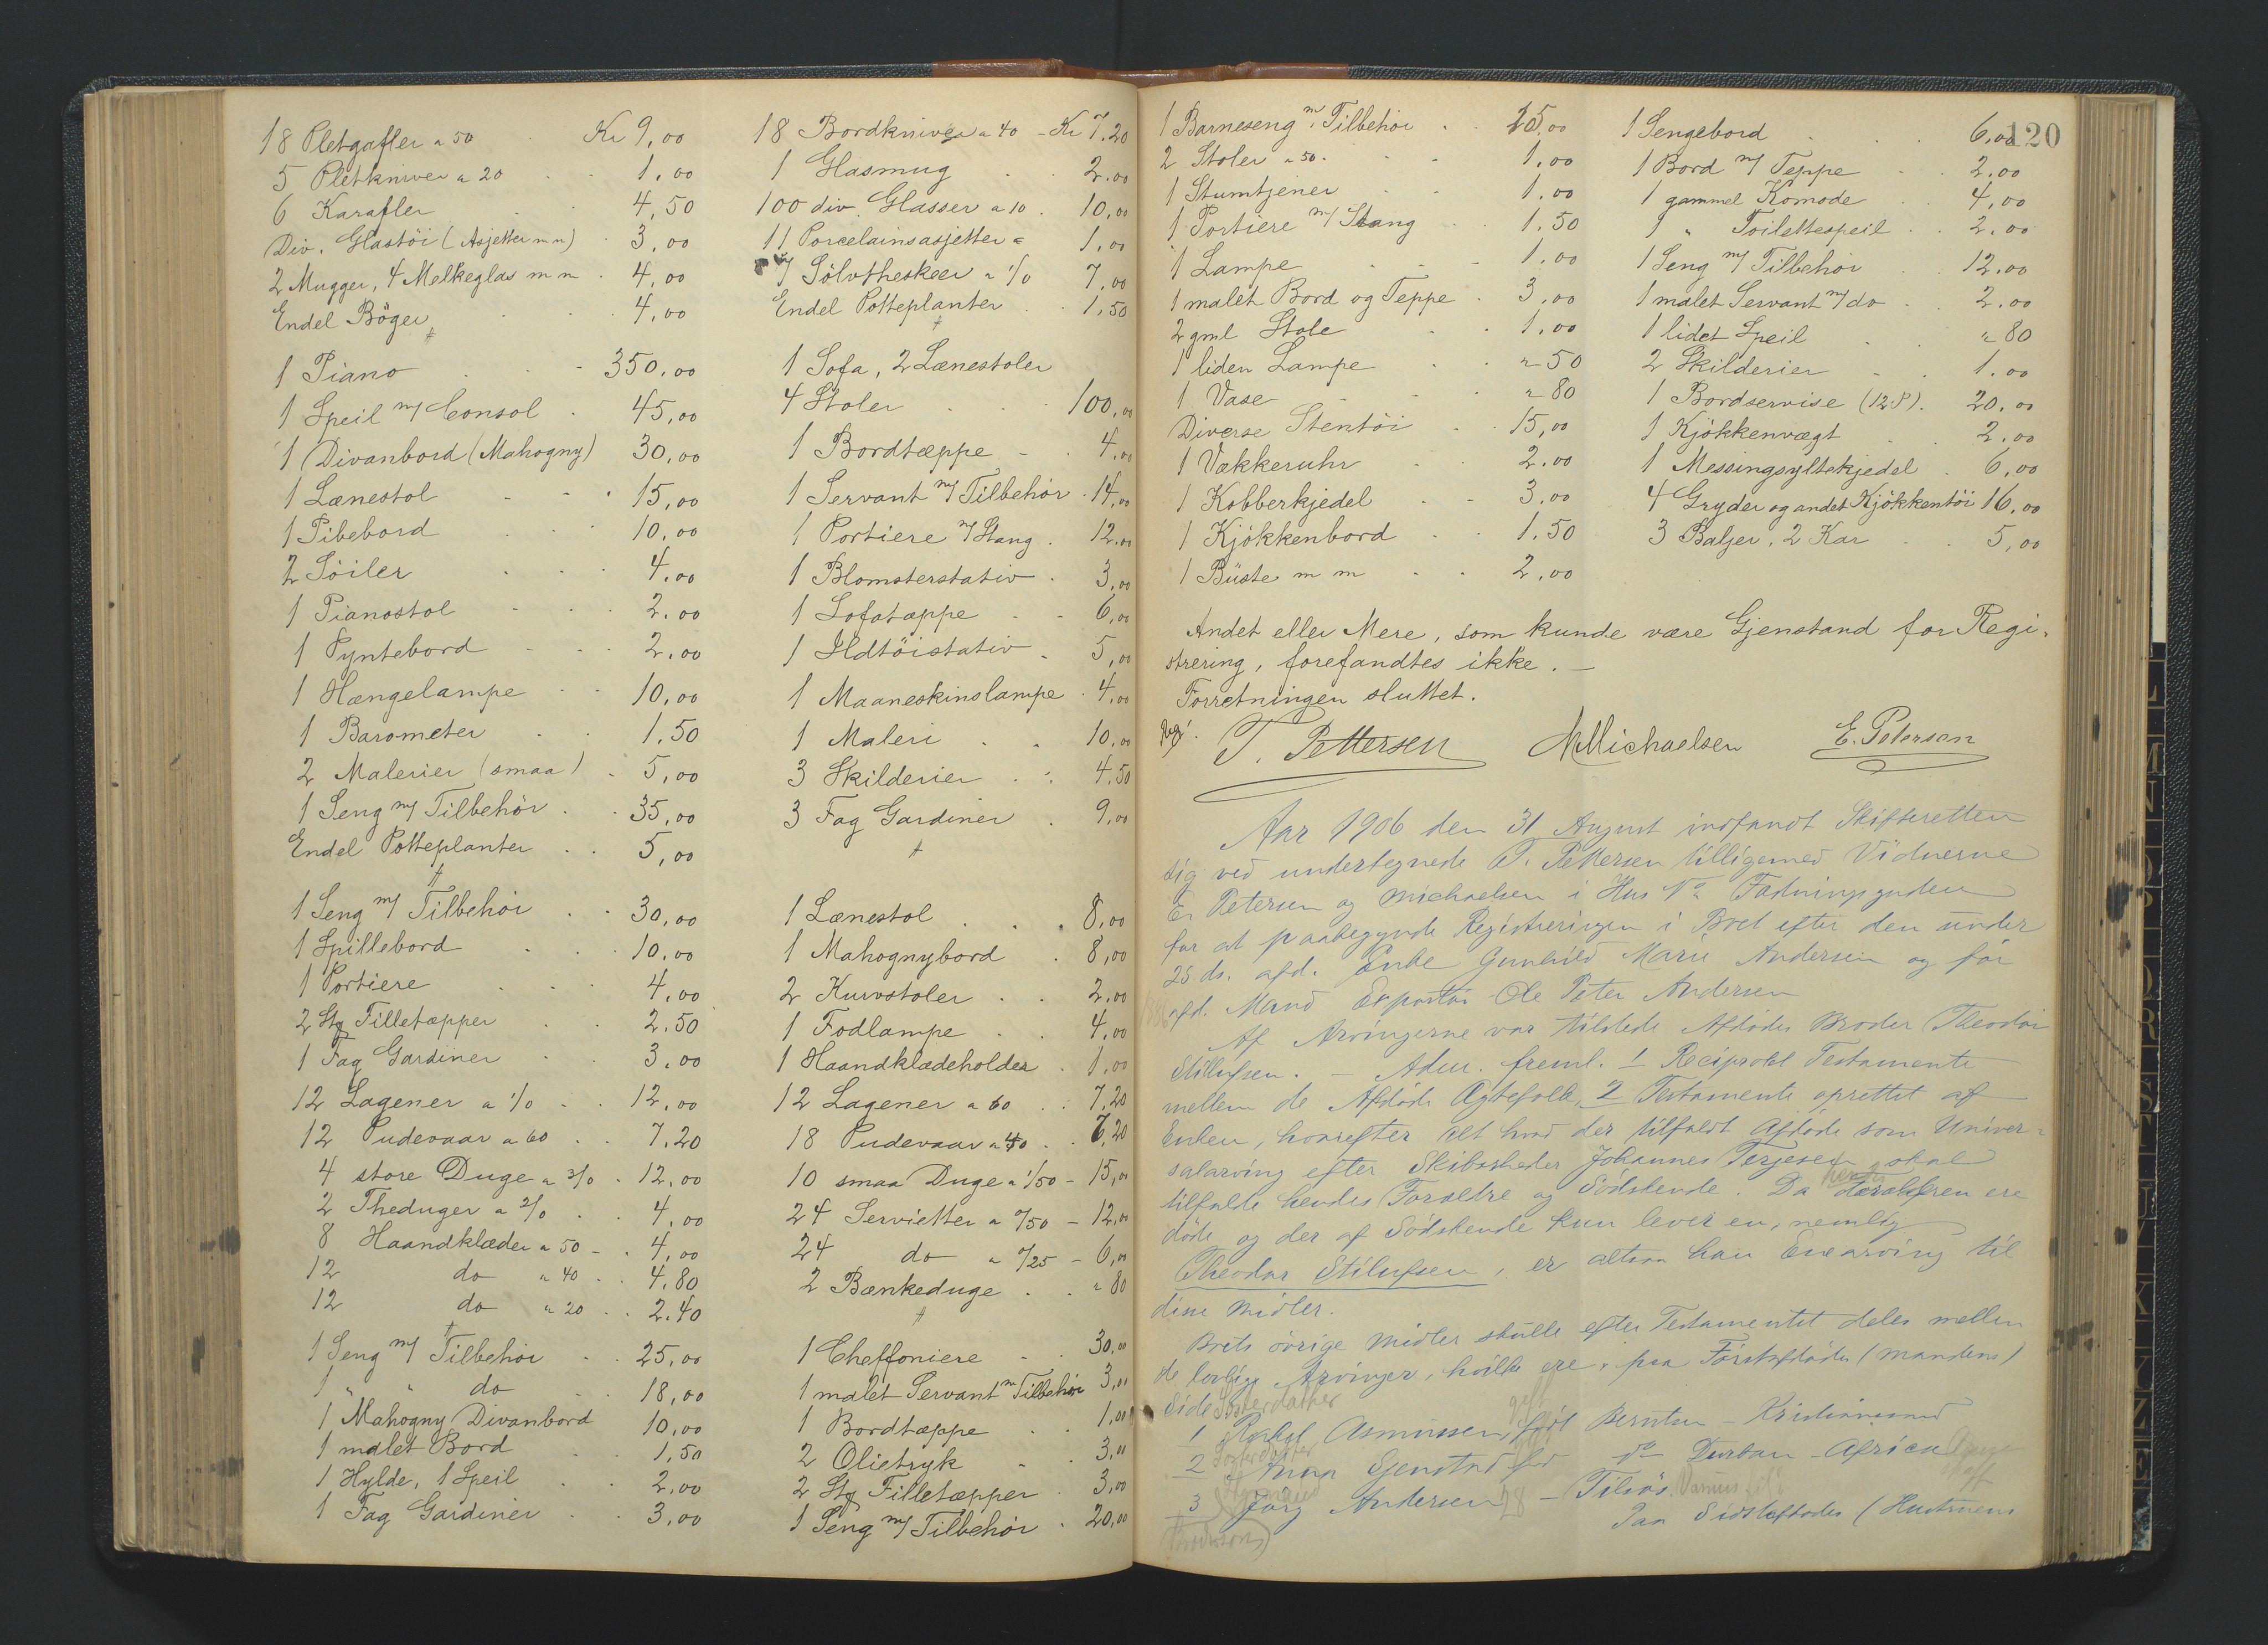 18 Pletgafler a 50 Kr 9,00
5 Pletkniver a 20 1,00
6 Karafler 4,50
Div. Glastöi (Asjetter m m) 3,00
2 Mugger, 4 Melkeglas m m 4,00
Endel Böger 4,00
1 Piano 350,00
1 Speil m/ Consol 45,00
1 Divanbord (Mahogny) 30,00
1 Lænestol 15,00
1 Pibebord 10,00
2 Söiler 4,00
1 Pianostol 2,00
1 Pyntebord 2,00
1 Hængelampe 10,00
1 Barometer 1,50
2 Malerier (smaa) 5,00
1 Seng m/ Tilbehör 35,00
Endel Potteplanter 5,00
1 Seng m/ Tilbehör 30,00
1 Spillebord 10,00
1 Portiere 4,00
2 Stg Filletæpper 2,50
1 Fag Gardiner 3,00
12 Lagener a 1/0 12,00
12 Pudevaar a 60 7,20
4 store Duge a 3/0 12,00
2 Theduger a 2/0 4,00
8 Haandklæder a 50 4,00
12 do a 40 4,80
12 do a 20 2,40
1 Seng m/ Tilbehör 25,00
1 " " do 18,00
1 Mahogny Divanbord 10,00
1 malet Bord 1,50
1 Hylde, 1 Speil 2,00
1 Fag Gardiner 3,00
18 Bordkniver a 40 - Kr 7,20
1 Glasmug 2,00
100 div. Glasser a 10 10,00
11 Porcelainsasjetter a 1,00
7 Sölvtheskeer a 1/0 7,00
Endel Potteplanter 1,50
1 Sofa, 2 Lænestoler
4 Stoler 100,00
1 Bordtæppe 4,00
1 Servant m/ Tilbehör 14,00
1 Portiere m/ Stang 12,00
1 Blomsterstativ 3,00
1 Sofatæppe 6,00
1 Ildtöistativ 5,00
1 Maaneskinslampe 4,00
1 Maleri 10,00
3 Skilderier 4,50
3 Fag Gardiner 9,00
1 Lænestol 8,00
1 Mahognybord 8,00
2 Kurvstoler 2,00
1 Fodlampe 4,00
1 Haandklædeholder 1,00
12 Lagener a 60 7,20
18 Pudevaar a 40 7,20
10 smaa Duge a 1/50 - 15,00
24 Servietter a "/50 - 12,00
24 do a "/25 - 6,00
2 Bænkeduge " 80
1 Cheffoniere 30,00
1 malet Servant m Tilbehör 3,00
1 Bordtæppe 1,00
2 Olietryk 3,00
2 Stg Filletæpper 3,00
1 Seng m/ Tilbehör 20,00
120
1 Barneseng m/ Tilbehör 15,00
2 Stoler a 50 1,00
1 Stumtjener 1,00
1 Portiere m/ Stang 1,50
1 Lampe 1,00
1 malet Bord og Teppe 3,00
2 gml Stole 1,00
1 liden Lampe " 50
1 Vase " 80
Diverse Stentöi 15,00
1 Vækkeruhr 2,00
1 Kobberkjedel 3,00
1 Kjökkenbord 1,50
1 Büste m m 2,00
1 Sengebord 6,00
1 Bord m/ Teppe 2,00
1 gammel Komode 4,00
1 " Toilettespeil 2,00
1 Seng m/ Tilbehör 12,00
1 malet Servant m/ do 2,00
1 lidet Speil " 80
2 Skilderier 1,00
1 Bordservise (12 P). 20,00
1 Kjökkenvægt 2,00
1 Messingsyltekjedel 6,00
4 Gryder og andet Kjökkentöi 16,00
3 Baljer, 2 Kar 5,00
Andet eller Mere, som kunde være Gjenstand for Regi-
strering, forefandtes ikke. —
Forretningen sluttet.
T. Pettersen M Michaelsen E. Petersen
Aar 1906 den 31 August indfandt Skifteretten
sig ved undertegnede T. Pettersen tilligemed Vidnerne
E. Petersen og Michaelsen i Hus No
for at paabegynde Registreringen i Boet efter den under
25 ds. afd. Enke Gunhild Marie Andersen og før
afd. Mand Exportör Ole Peter Andersen
Af Arvingerne var tilstede Afdödes Broder Theodor
Stillufsen. — Adm. freml. 1 Reciprokt Testamente
mellem de Afdöde Ægtefolk, 2 Testamente oprettet af
Enken, hvorefter Alt hvad der tilfaldt Afdöde som Univer-
salarving efter Skibsreder Johannes Terjesen skal
tilfalde hendes Forældre og Södskende. Da Forældren ere
döde og der af Södskende kun lever en, nemlig
Theodor Stilufsen, er altsaa han Enearving til
disse Midler.
Boets övrige Midler skulle efter Testamentet deles mellem
de lovlige Arvinger, hvilke ere, paa Förstafdödes (Mandens)
Side Sösterdatter
1 Rakel Asmussen, född Berntsen - Kristianssand
2 Anna födt do Durban - Africa
3 Andersen 28 -
Paa Sidstafdödes (Hustruens